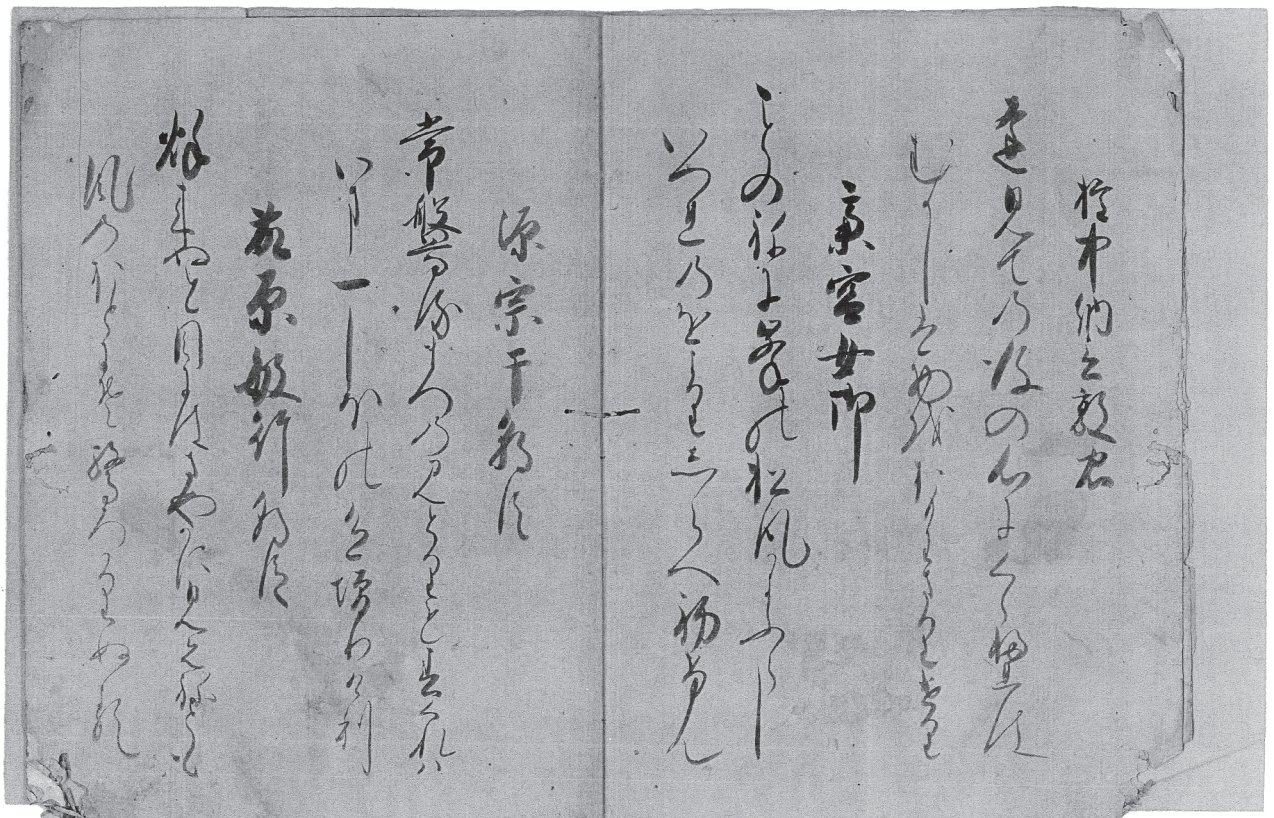 権中納言敦忠
逢見ての後の心にくらふれは
むかしは物をおもはさりけり
斎宮女御
ことのねに峯の松風かよふらし
いつれのをよりしらへ初けん
源宗于朝臣
常盤なる まつのみとりも春くれは
いま一しほの色増りけり
藤原敏行朝臣
秋きぬと目にはさやかに見えねとも
風のおとにそ驚かれぬる